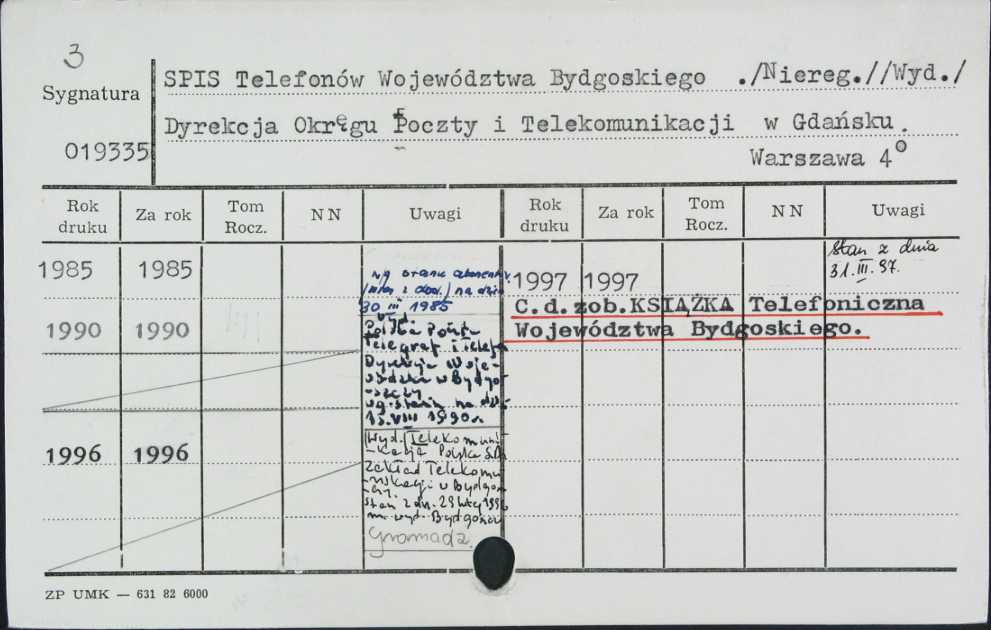 3
Sygnatura
SPIS Telefonów Województwa Bydgoskiego ./Niereg.//Wyd./
Dyrekcja Okręgu Poczty i Telekomunikacji w Gdańsku.
019335
Warszawa 4°
Rok druku
Za rok
Tom Rocz.
NN
Uwagi
Rok druku
Za rok
Tom Rocz.
NN
Uwagi
1985 1985
wg stanu
na dzień
30 III 1985
1990 1990
Wyd.
Polska Poczta
Telegraf i Telefon
Dyrekcja Woje-
wódzka w Bydgo-
-szczy
wg stanu na dzień
15.VIII 1990r.
1996 1996
/Wyd./Telekomuni-
-kacja Polska S.A.
Zakład Telekomu-
-nikacji w Bydgo-
stan z dn. 29 luty 1996
m. wyd. Bydgoszcz
Gromadz.
1997 1997
stan z dnia
31.III.97.
C.d.zob.KSIĄŻKA Telefoniczna
Województwa Bydgoskiego.
ZP UMK — 631 82 6000